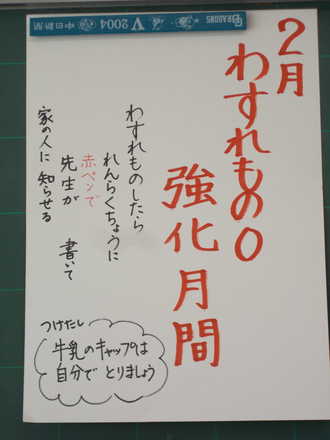 DRAGONS V 2004 中日新聞
2月
わすれもの0
強化月間
わすれものしたら
れんらくちょうに
赤ペンで
先生が 書いて
家の人に 知らせる
つけたし
牛乳のキャップは
自分で とりましょう